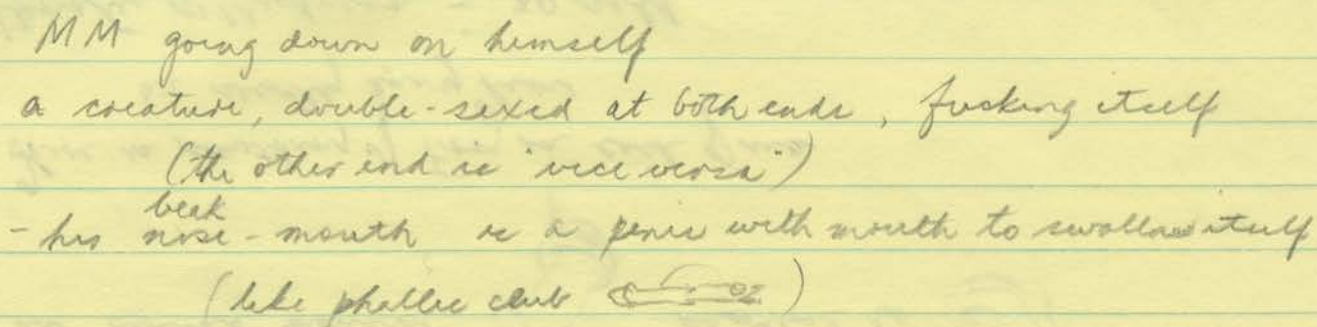 MM going down on himself
a creature, double-sexed at both ends, fucking itself
(the other end is "vice versa")
beak
- his nose - mouth is a penis with mouth to swallow itself
(like phallic club )